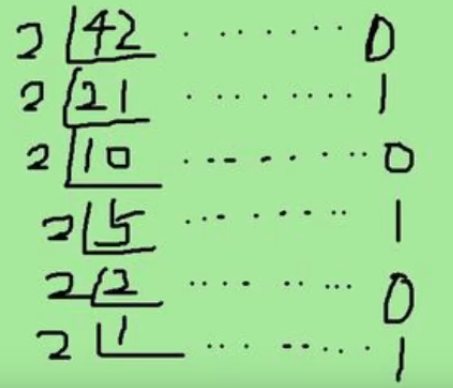 2 42 ........ 0
2 21 ........ 1
2 10 ........ 0
2 5 ........ 1
2 2 ........ 0
2 1 ........ 1